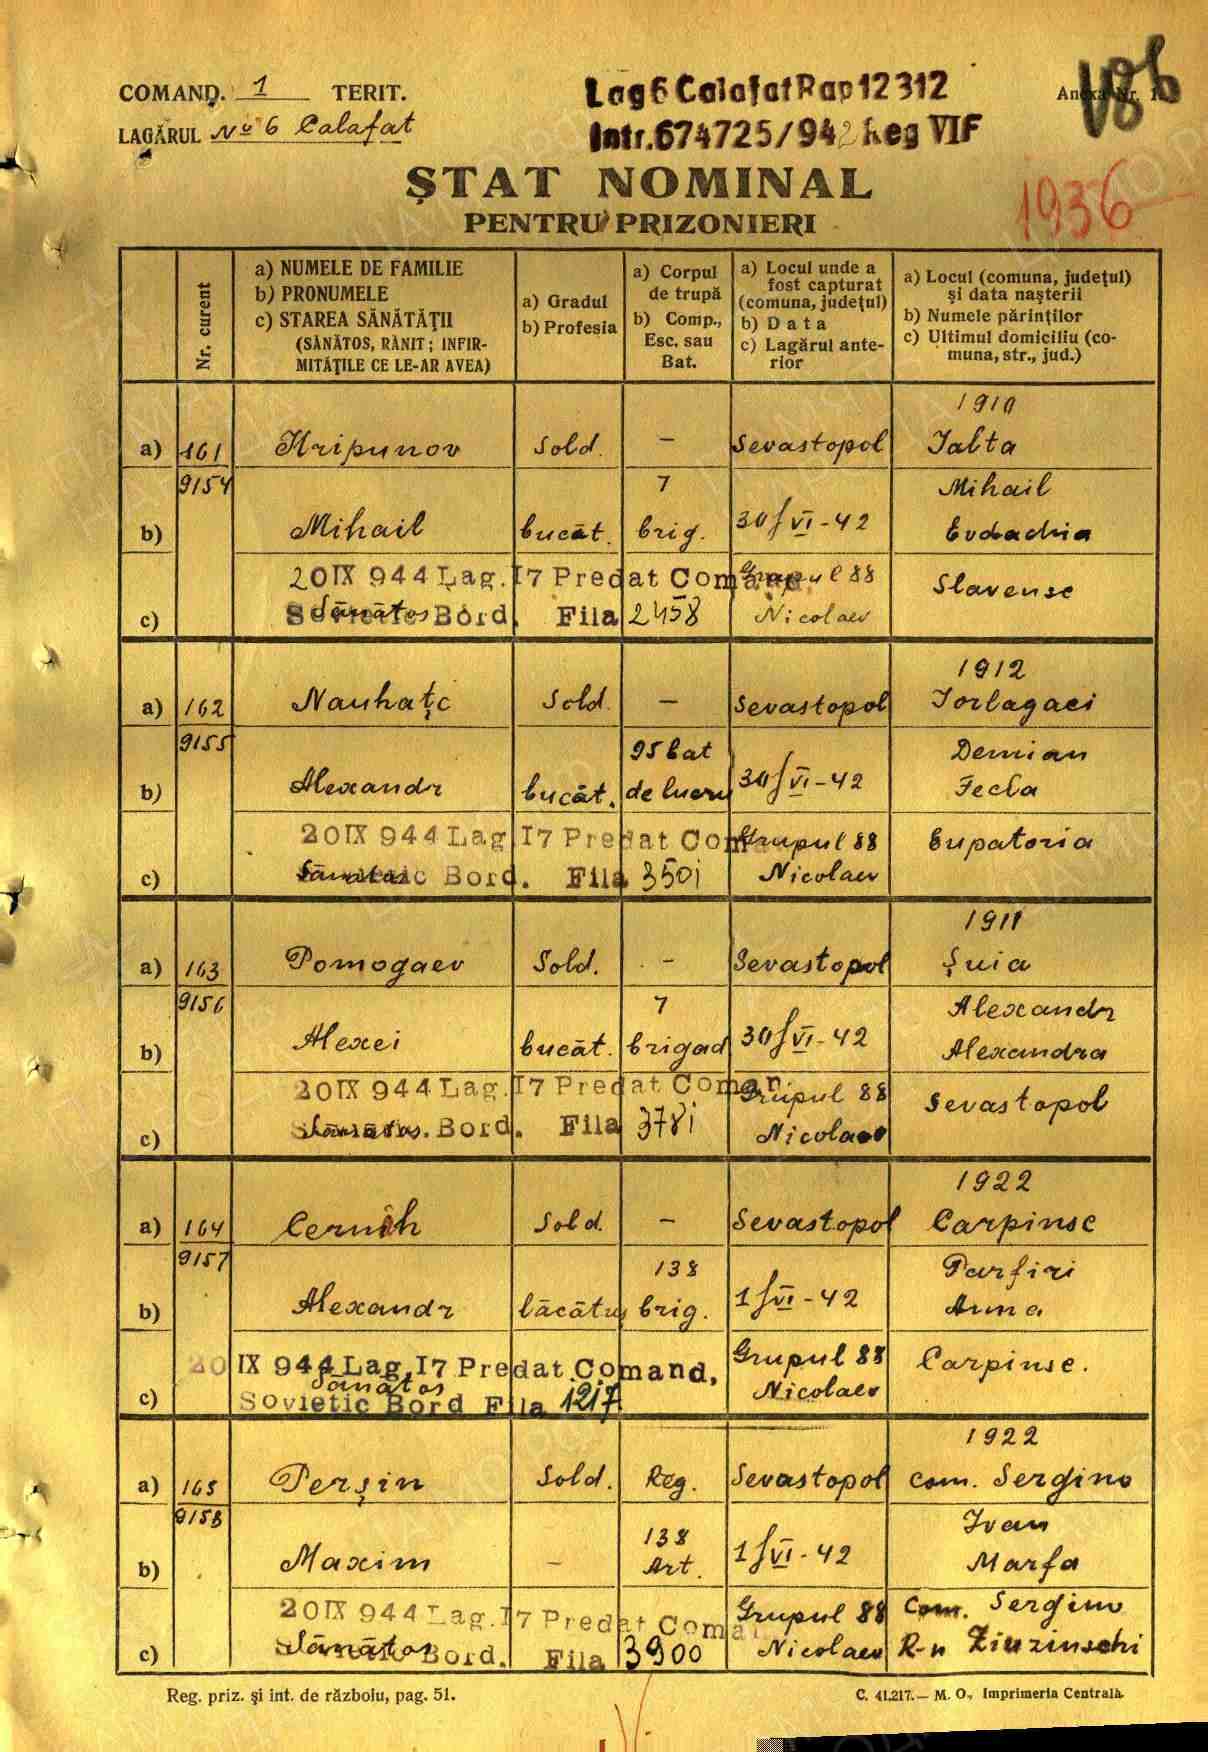 COMAND. 1 TERIT.
LAGĂRUL No 6 Calafat
Lag 6 Calafat Rap 12312
Intr. 674725/942 Reg VIF
Anexa Nr. 1
ȘTAT NOMINAL
PENTRU PRIZONIERI
1936
Nr. curent
a) NUMELE DE FAMILIE
b) PRONUMELE
c) STAREA SĂNĂTĂȚII
(SĂNĂTOS, RĂNIT; INFIR-
MITĂȚILE CE LE-AR AVEA)
a) Gradul
b) Profesia
a) Corpul
de trupă
b) Comp.,
Esc. sau
Bat.
a) Locul unde a
fost capturat
(comuna, județul)
b) Data
c) Lagărul ante-
rior
a) Locul (comuna, județul)
și data nașterii
b) Numele părinților
c) Ultimul domiciliu (co-
muna, str., jud.)
1910
a) 161 Hripunov Sold. — Sevastopol Ialta
9154 7 Mihail
b) Mihail bucăt. brig. 30/VI-42 Evdachia
20 IX 944 Lag. 17 Predat Comand. Grupul 88 Slavense
c) Sănătos Sovietic Bord. Fila 2458 Nicolaev
1912
a) 162 Nauhațc Sold. — Sevastopol Iorlagaei
9155 95 bat Demian
b) Alexandr bucăt. de lucru 30/VI-42 Fecla
20 IX 944 Lag. 17 Predat Coma Grupul 88 Eupatoria
c) Sănătos Bord. Fila 3501 Nicolaev
1911
a) 163 Pomogaev Sold. — Sevastopol Șuia
9156 7 Alexandr
b) Alexei bucăt. brigad 30/VI-42 Alexandra
20 IX 944 Lag. 17 Predat Coman Grupul 88 Sevastopol
c) Sănătos. Bord. Fila 3781 Nicolaev
1922
a) 164 Cernih Sold. — Sevastopol Carpinsc
9157 138 Parfiri
b) Alexandr lăcătuș brig. 1/VI-42 Anna
20 IX 944 Lag. 17 Predat Comand, Grupul 88 Carpinsc.
c) Sănătos Sovietic Bord Fila 1217 Nicolaev
1922
a) 165 Perșin Sold. Reg. Sevastopol com. Sergino
9158 138 Ivan
b) Maxim — Art. 1/VI-42 Marfa
20 IX 944 Lag. 17 Predat Coma Grupul 88 Com. Sergino
c) Sănătos Bord. Fila 3900 Nicolaev R-n Ziuzinschi
Reg. priz. și int. de războiu, pag. 51.
C. 41.217.— M. O., Imprimeria Centrală.